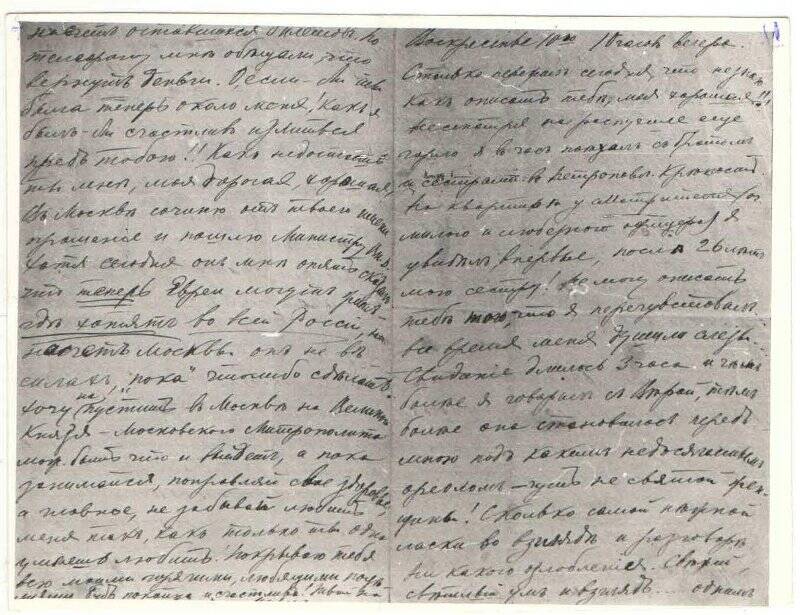 насчетъ оставшихся
телефону мнѣ обѣщали, что
вернутъ деньги. О, если-бы ты
была теперь около меня! Какъ я
былъ-бы счастливъ
предъ тобою!! Какъ недостаетъ
ты мнѣ, моя дорогая, хорошая,
Въ Москвѣ сочиню отъ твоего имени
прошеніе и пошлю Министру Вн. д.
хотя сегодня онъ мнѣ опять сказалъ
что теперь Евреи могутъ жить
гдѣ хотятъ во всей Россіи, но
насчетъ Москвы онъ не въ
силахъ "пока" что-либо сдѣлать.
хочу на пустить въ Москвѣ на Великаго
Князя – Московскаго Митрополита
мож. быть что и выйдетъ, а пока
занимайся, поправляй свое здоровье
а главное, не забывай любить
меня такъ, какъ только ты одна
умѣешь любить. Покрываю тебя
всю моими горячими, любящими
будь покойна и счастлива. Твой
Воскресенье 10 часовъ вечера.
Столько сегодня, что не знаю
какъ описать тебѣ, моя хорошая!!
я въ часъ поѣхалъ съ
и сестрами въ Петропавл. Крѣпость.
На квартирѣ у
милого и офицера) я
увидѣлъ впервые, послѣ 26 лѣтъ
мою сестру. Не могу описать
тебѣ того, что я перечувствовалъ
все время меня душили слезы.
Свиданіе длилось 3 часа и чѣмъ
болѣе я говорилъ съ Вѣрой, тѣмъ
болѣе она становилась передъ
мною подъ какимъ недосягаемымъ
ореоломъ – чуть не святой жен-
щины! Сколько самой нѣжной
ласки во взглядѣ и разговорѣ
ни какого озлобленія. Свѣтлый
умъ и взглядъ...